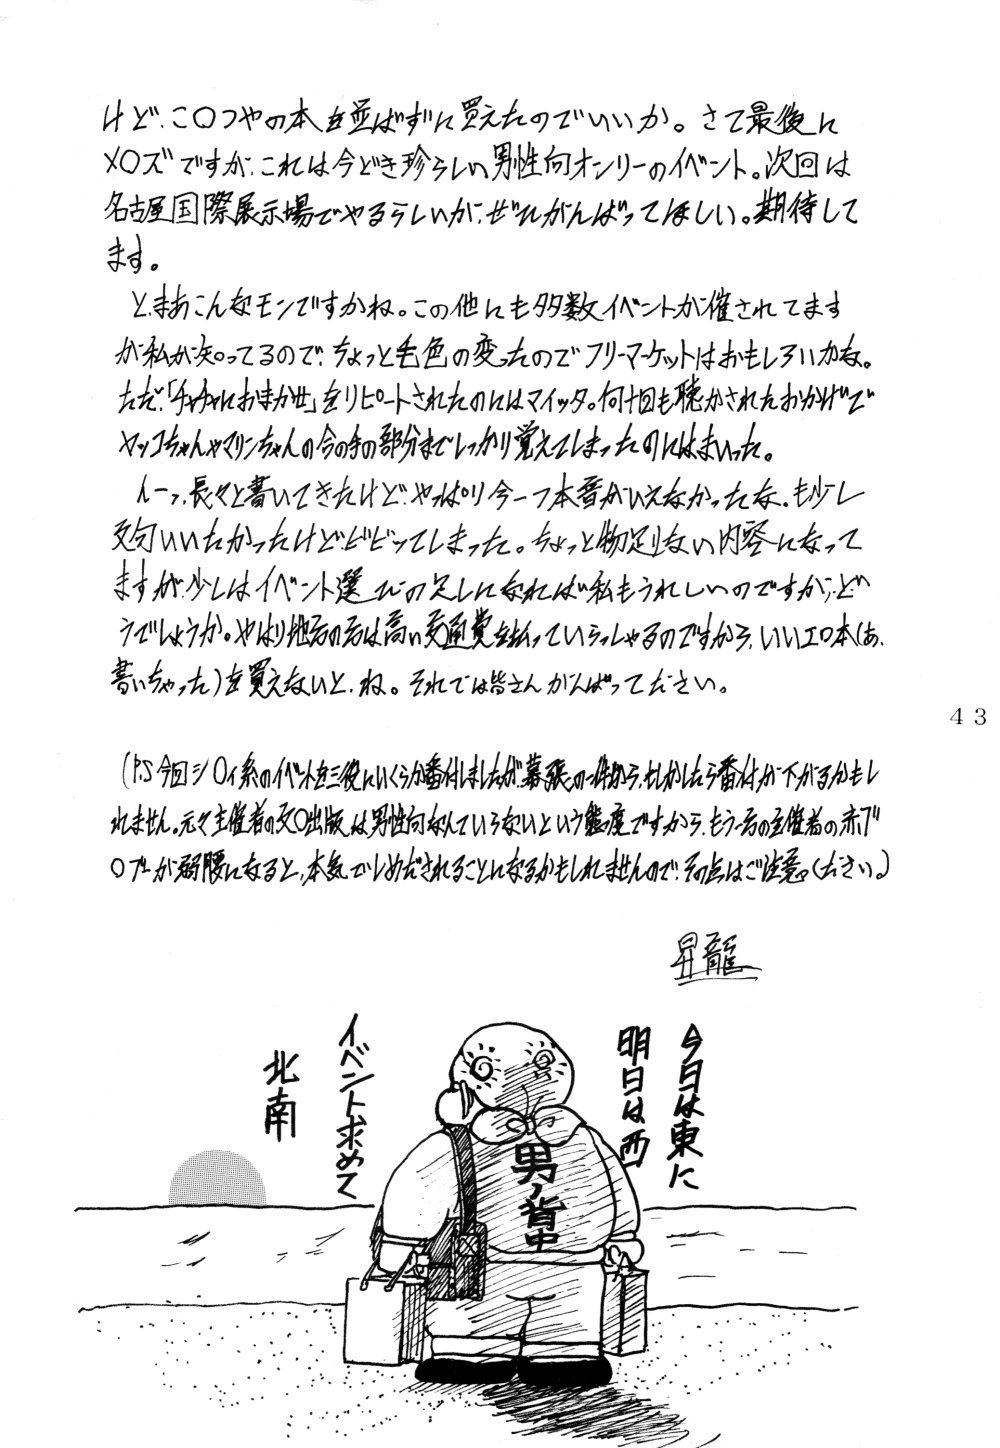 けど、こ〇つやの本を並ばずに買えたのでいいか。さて最後に
メ〇ズですが、これは今どき珍らしい男性向オンリーのイベント。次回は
名古屋国際展示場でやるらしいが、ぜひがんばってほしい。期待して
ます。
と、まあこんなモンですかね。この他にも多数イベントが催されてます
が私が知ってるので、ちょっと毛色の変ったのでフリーマーケットはおもしろいかな。
ただ、「チャチャにおまかせ」をリピートされたのにはマイッタ。何十回も聴かされたおかげで
ヤッコちゃんやマリンちゃんの今の手の部分までしっかり覚えてしまったのにはまいった。
んーっ、長々と書いてきたけど、やっぱり今一つ本音がいえなかったな。も少し
文句いいたかったけどビビッてしまった。ちょっと物足りない内容になって
ますが、少しはイベント選びの足しになれば私もうれしいのですが、ど
うでしょうか。やはり地方の方は高い交通費を払っていらっしゃるのですから、いいエロ本(あ、
書いちゃった)を買えないと、ね。それでは皆さんがんばってださい。
(P.S 今回シ〇ィ系のイベントを三役にいくらか番付しましたが、幕張の一件から、もしかしたら番付が下がるかもし
れません。元々主催者の文〇出版は男性向なんていらないという態度ですから、もう一方の主催者の赤ブ
〇ブーが弱腰になると、本気でしめだされることになるかもしれませんので、その点はご注意。ください。)
昇龍
今日は東に
明日は西
イベント求めて
北南
男ノ背中
43